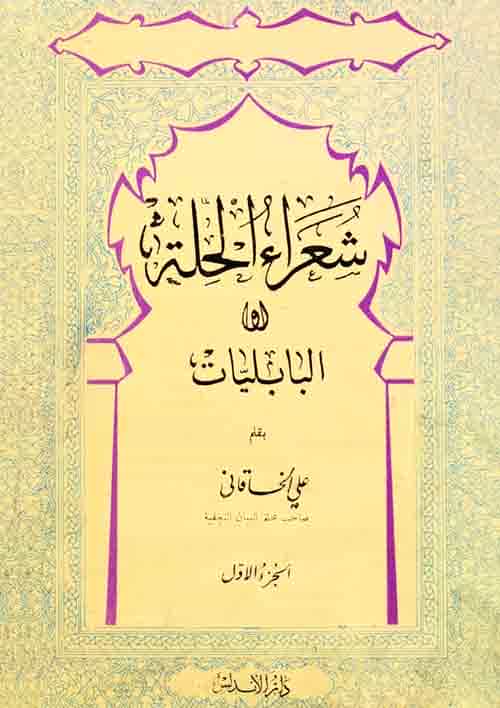 شُعَرَاءُ الحِلّة
أو
البابليّات
بقلم
علي الخاقاني
صاحب مجلة البيان النجفية
الجزءُ الاوّل
دَارُ الأندلس